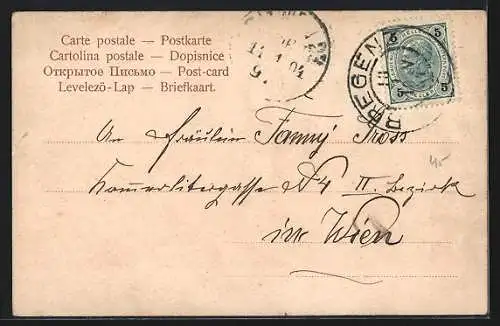 Carte postale — Postkarte
Cartolina postale — Dopisnice
Открытое Письмо — Post-card
Levelező-Lap — Briefkaart.
5 5
BREGEN
An Fräulein Fanny Pross
gasse № 4 II. Bezirk
in Wien
45